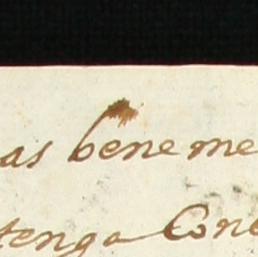 as beneme
tenga Cone